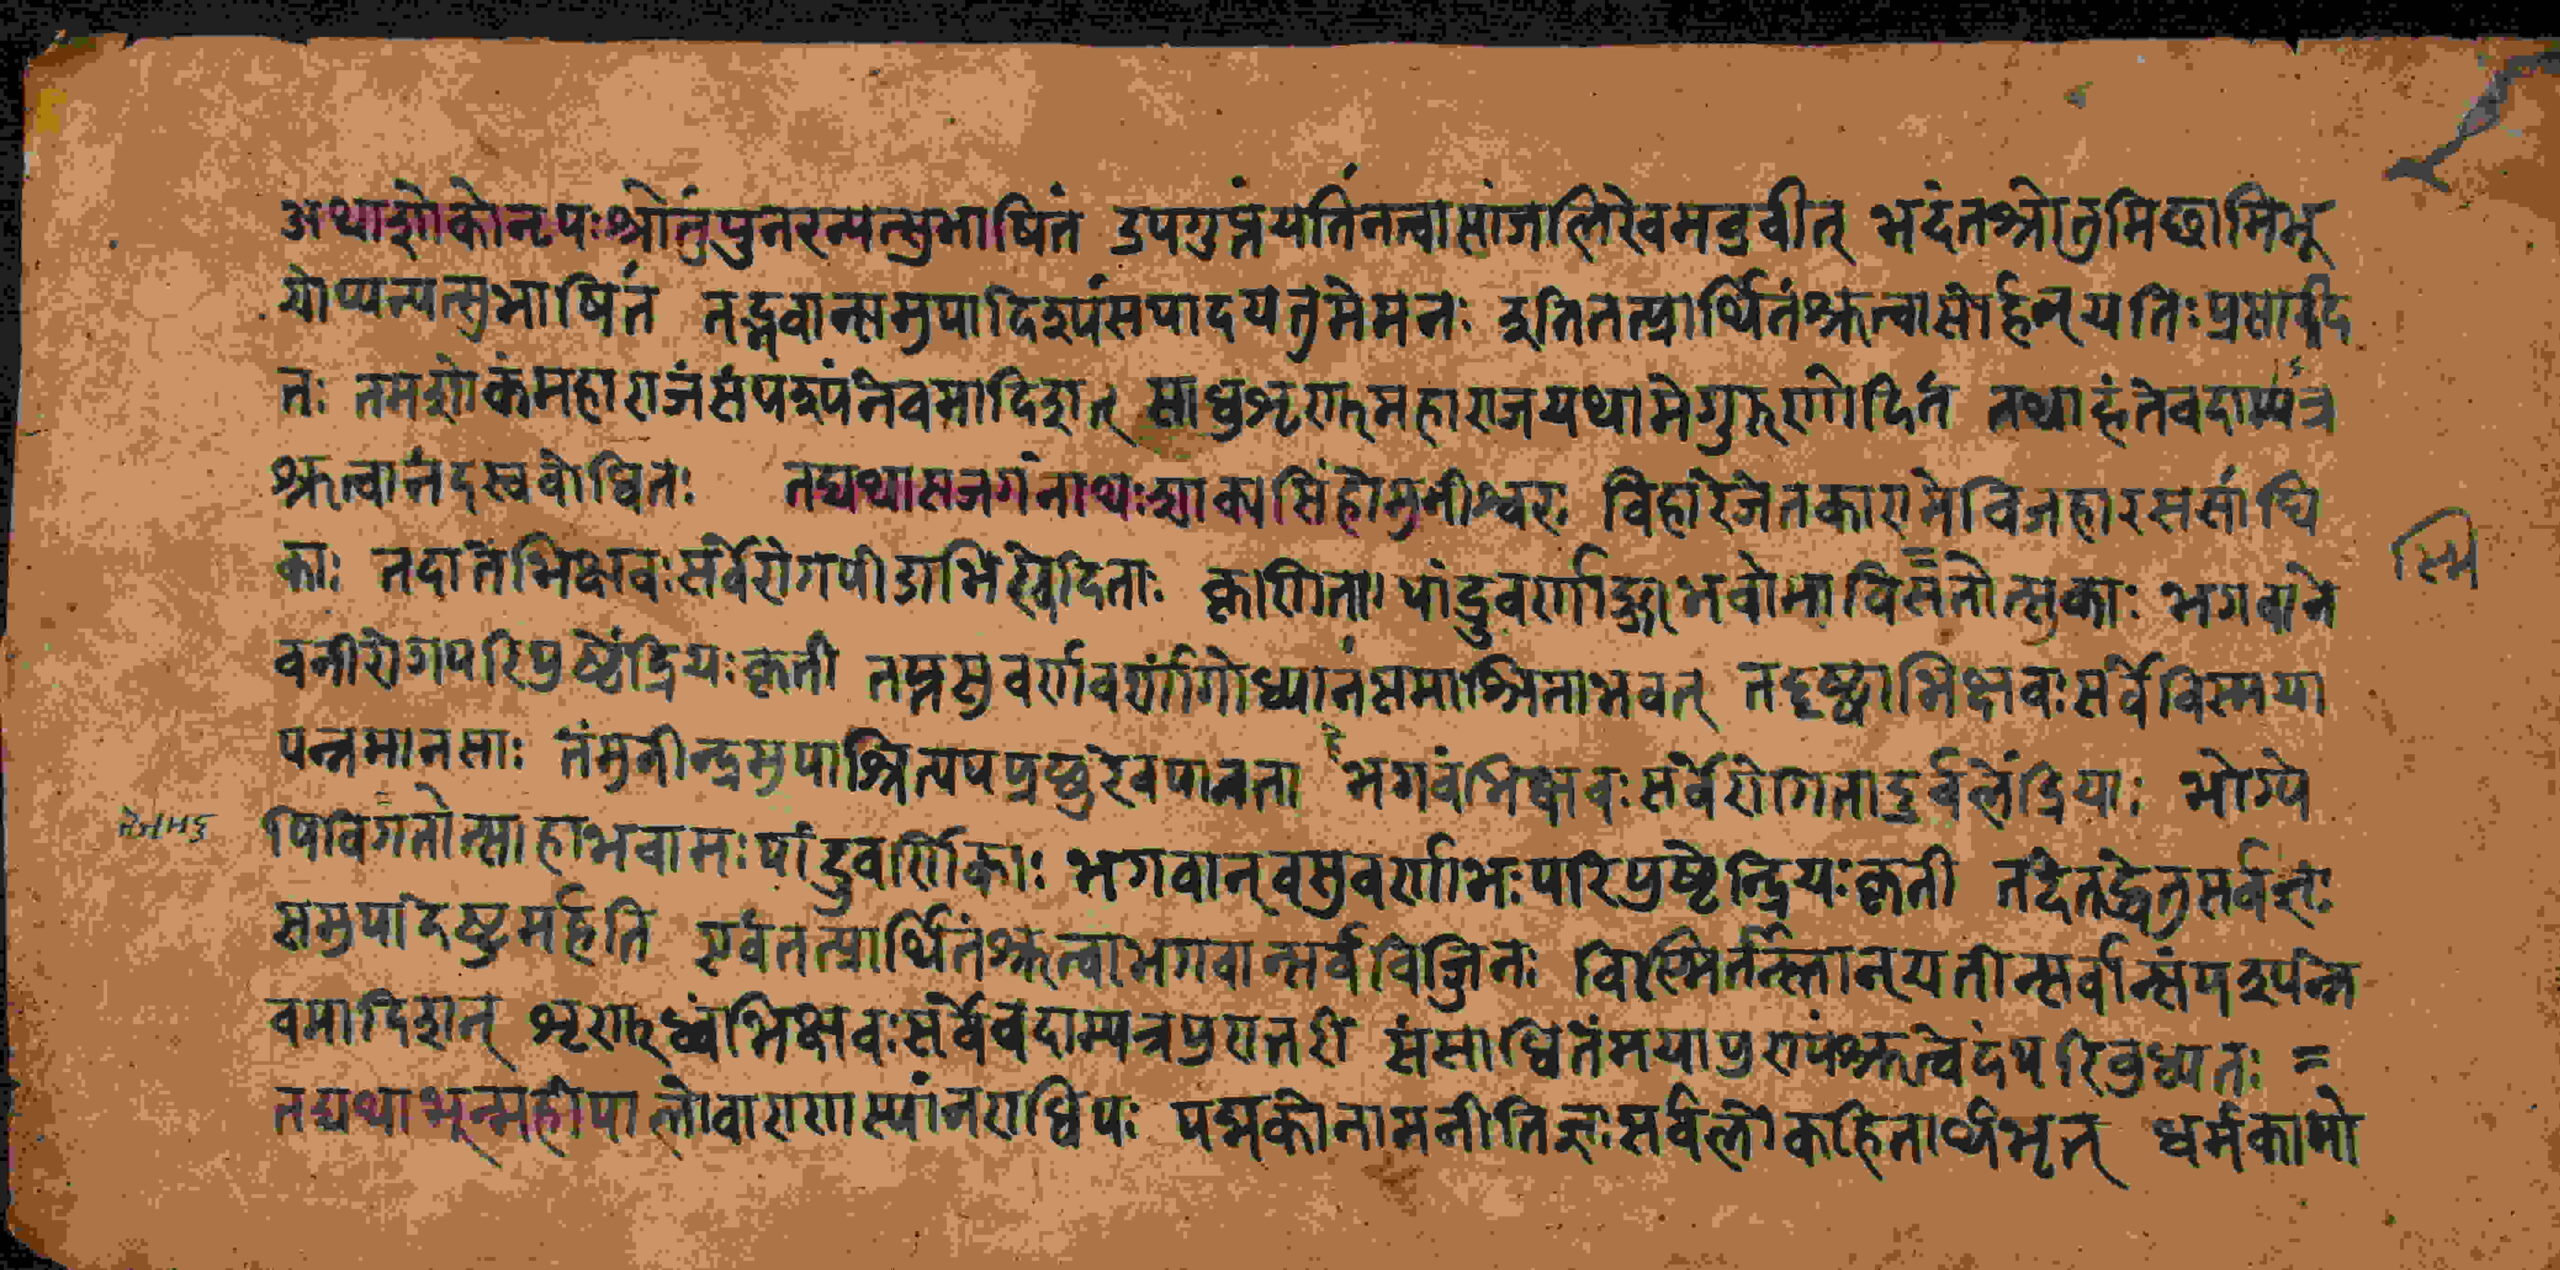 अथाशोकोनृपःश्रोतुंपुनरन्यत्सुभाषितं उपगुप्तंयतिंनत्वासांजलिरेवमब्रवीत् भदंतश्रोतुमिछामिभू
योप्यन्यत्सुभाषितं तद्भवान्समुपादिश्यसंपादयतुमेमनः इतितत्प्रार्थितंश्रुत्वासोर्हन्यतिःप्रसादि
तः तमशोकंमहाराजंसंपश्यंनेवमादिशत् साधुशृणुमहाराजयथामेगुरुणोदितं तथाहंतेवदाम्यत्र
श्रुत्वानंदस्वबोधितः तद्यथासजगंनाथःशाक्यसिंहोमुनीश्वरः विहारेजेतकारामेविजहारससांघि
कः तदातेभिक्षवःसर्वेरोगपीडाभिखेदिताः पांडुवर्णा भगवाने
स्मि
वनीरोगपरिपुष्टेंद्रियःकृती तप्तसुवर्णवर्णांगोध्यानंसमाश्रिताभवत् तद्दृष्ट्वाभिक्षवःसर्वेविस्मया
पन्नमानसाः तंमुनीन्द्रमुपाश्रित्यपप्रछुरेवपानता हे भगवंभिक्षवःसर्वेरोगितादुर्बलेंद्रियाः भोग्ये
षिविगतोत्साहाभवामःपांडुवर्णिकाः भगवान्वसुवर्णाभःपरिपुष्टेन्द्रियःकृती तदेतद्धेतुसर्वज्ञः
समुपादेष्टुमर्हति एवंतत्प्रार्थितंश्रुत्वाभगवान्सर्वविज्जिनः विस्मितांस्तान्यतीन्सर्वान्संपश्यन्ने
वमादिशत् शृणुध्वंभिक्षवःसर्वेवदाम्यत्रपुरात्तरी संसाधितंमयापुण्यंश्रुत्वेदंपरिबुध्यतः =
तद्यथाभून्महीपालोवाराणास्यांनराधिपः पद्मकोनामनीतिज्ञःसर्वलोकहितार्थभृत् धर्मकामो